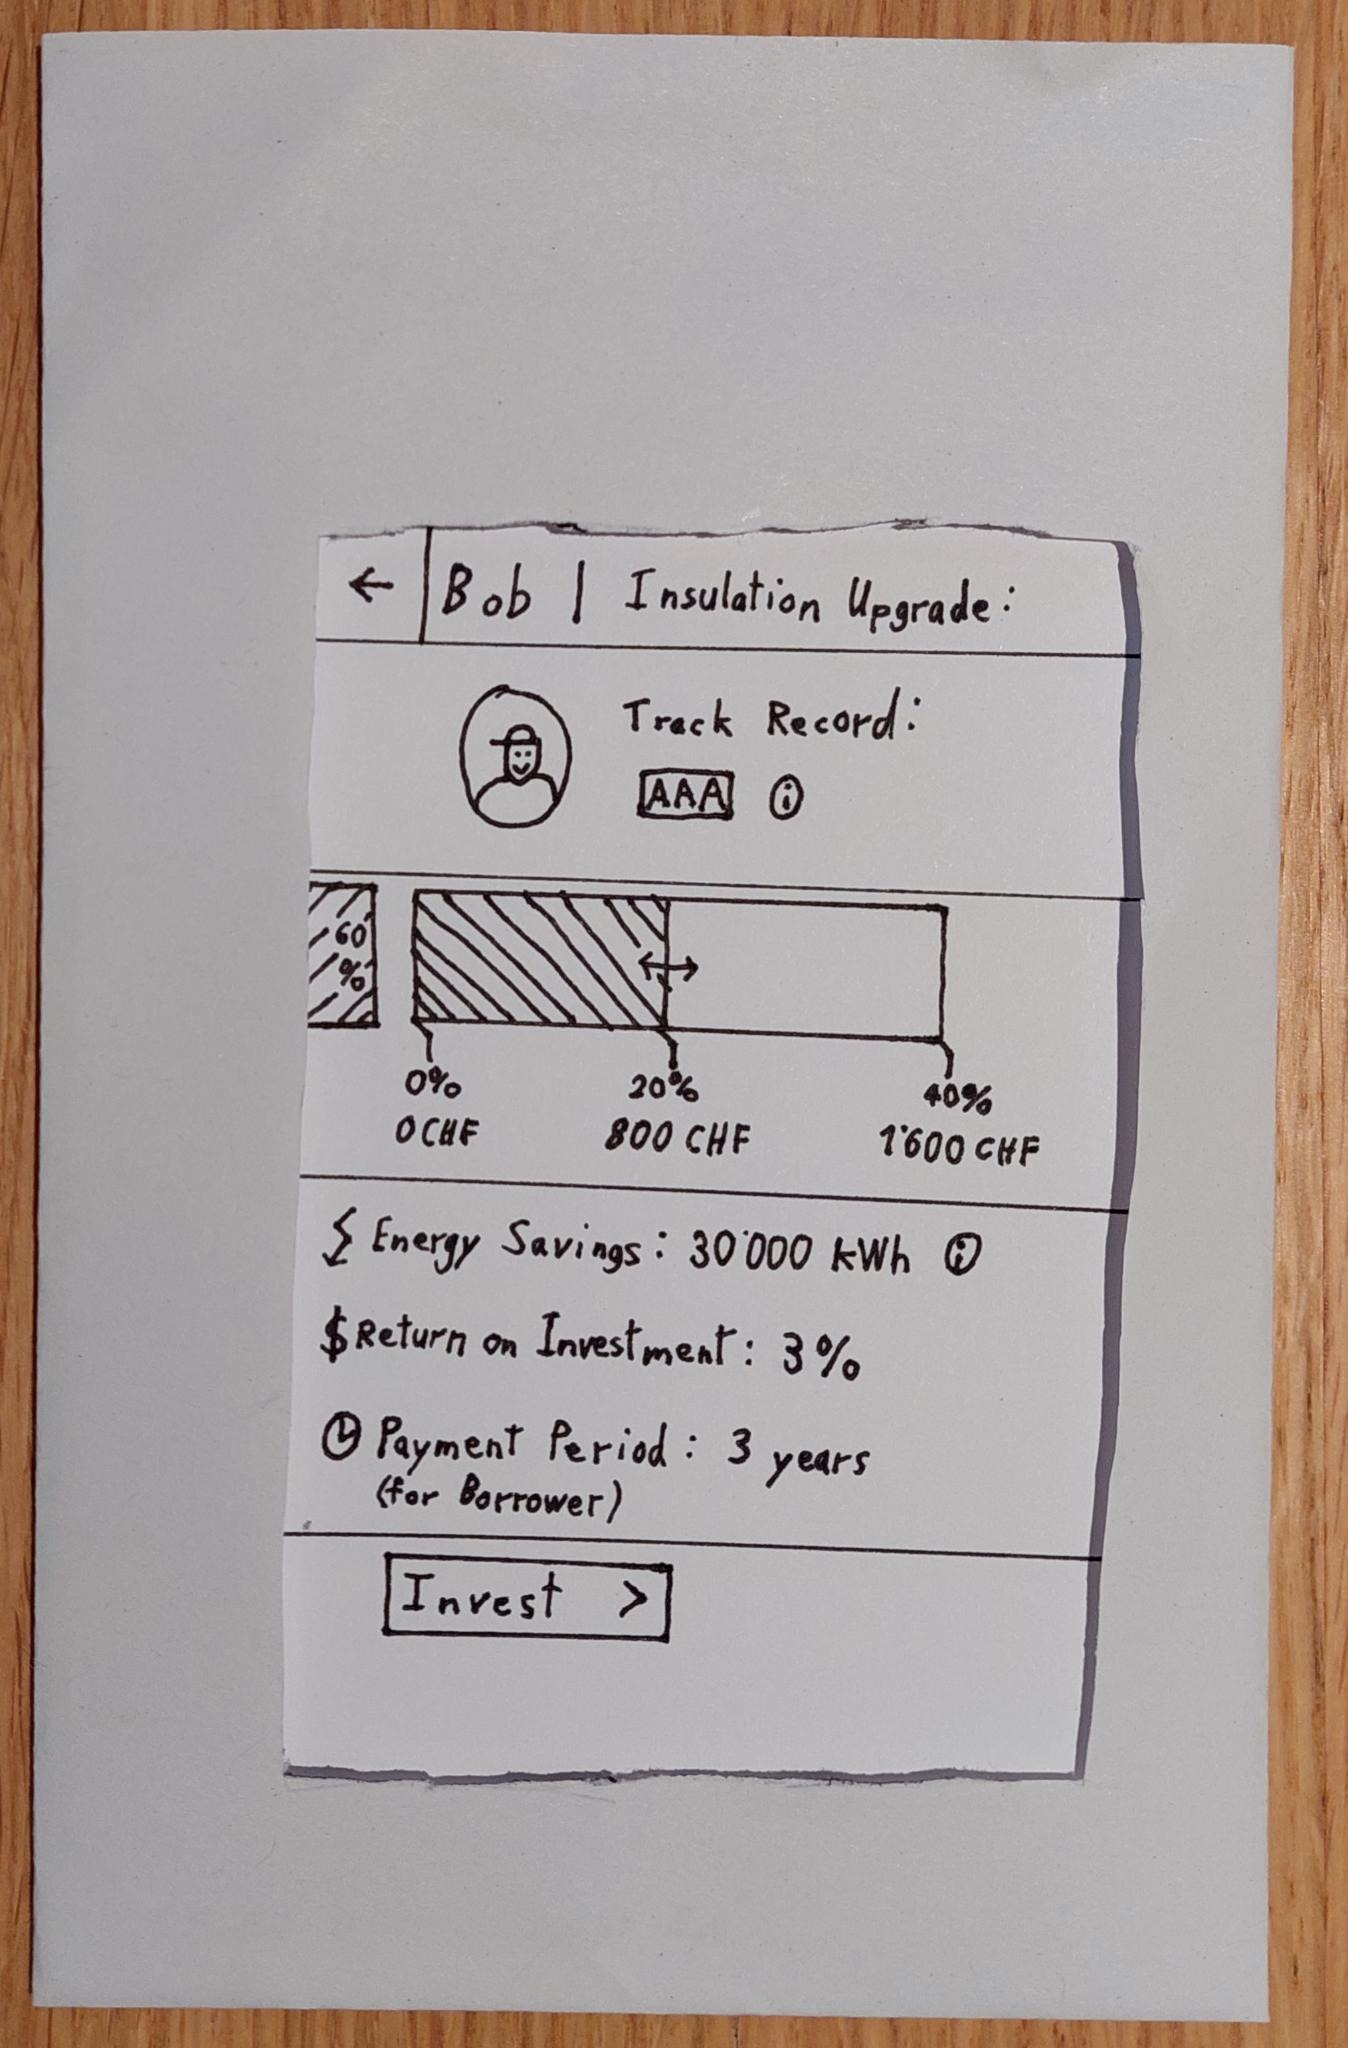 ← Bob | Insulation Upgrade:
Track Record:
AAA i
60
%
0% 20% 40%
0 CHF 800 CHF 1'600 CHF
Energy Savings: 30'000 kWh i
$ Return on Investment: 3%
Payment Period: 3 years
(for Borrower)
Invest >